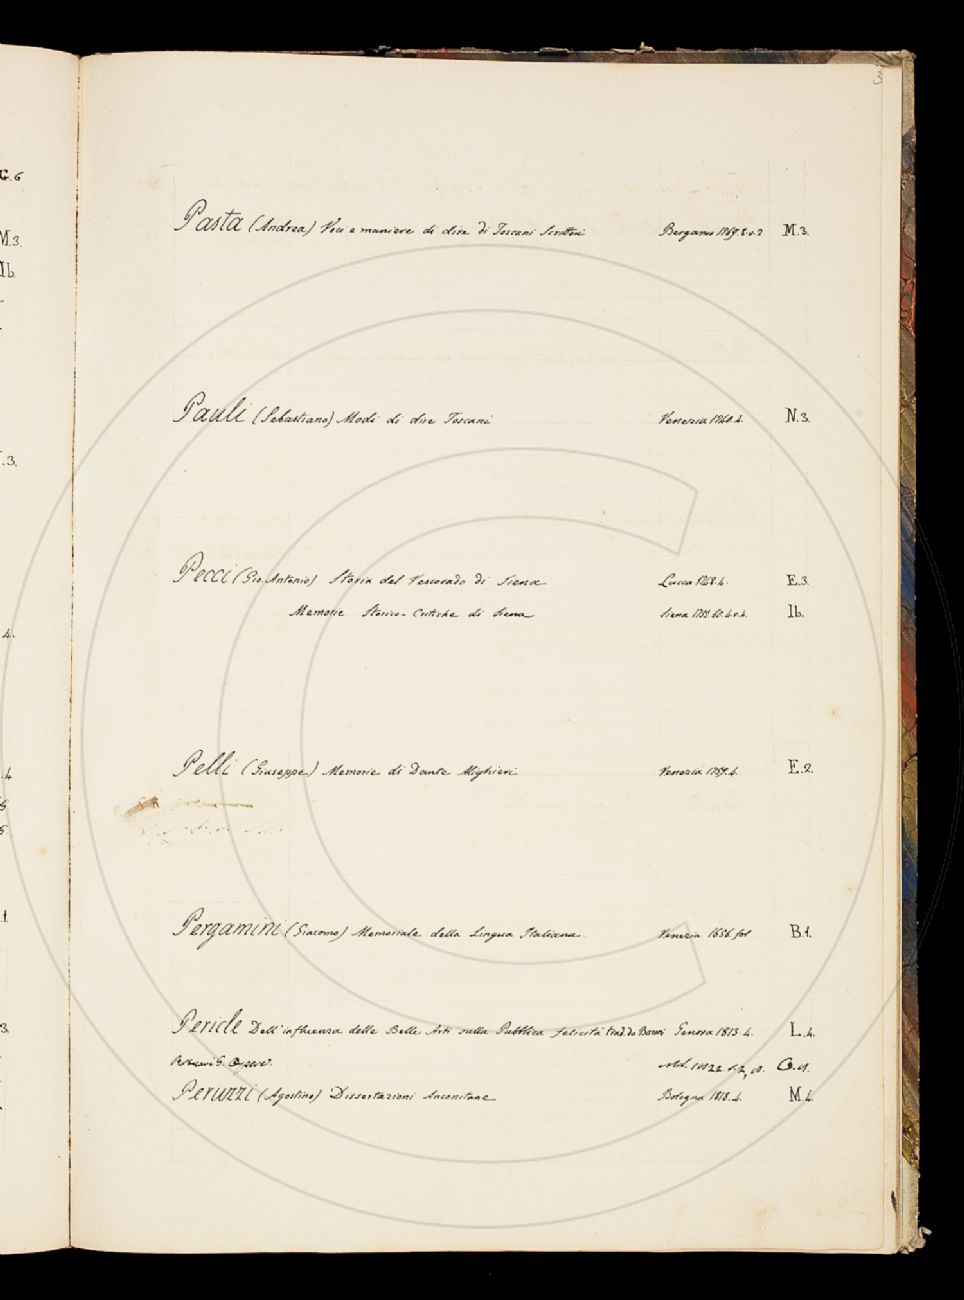 3
G.6
M.3.
Ib.
Pasta (Andrea) Voci e maniere di dire di Toscani Scrittori Bergamo 1769. 8. v. 2 M.3.
Pauli (Sebastiano) Modi di dire Toscani Venezia 1740. 4. N.3.
.3.
Pecci (Gio. Antonio) Storia del Vescovado di Siena Lucca 1748. 4. E.3.
Memorie Storico-Critiche di Siena Siena 1755. 60. 4. v. 4. Ib.
4.
Pelli (Giuseppe) Memorie di Dante Alighieri Venezia 1759. 4. E.2.
.4
Pergamini (Giacomo) Memoriale della Lingua Italiana. Venezia 1656. fol B.1.
3.
Pericle Dell'influenza delle Belle Arti sulla Pubblica felicità trad. da Genova 1813. 4. L.4.
G. Opere. Mil. 1822 O.
Peruzzi (Agostino) Dissertazioni Anconitane Bologna 1818. 4. M.4.